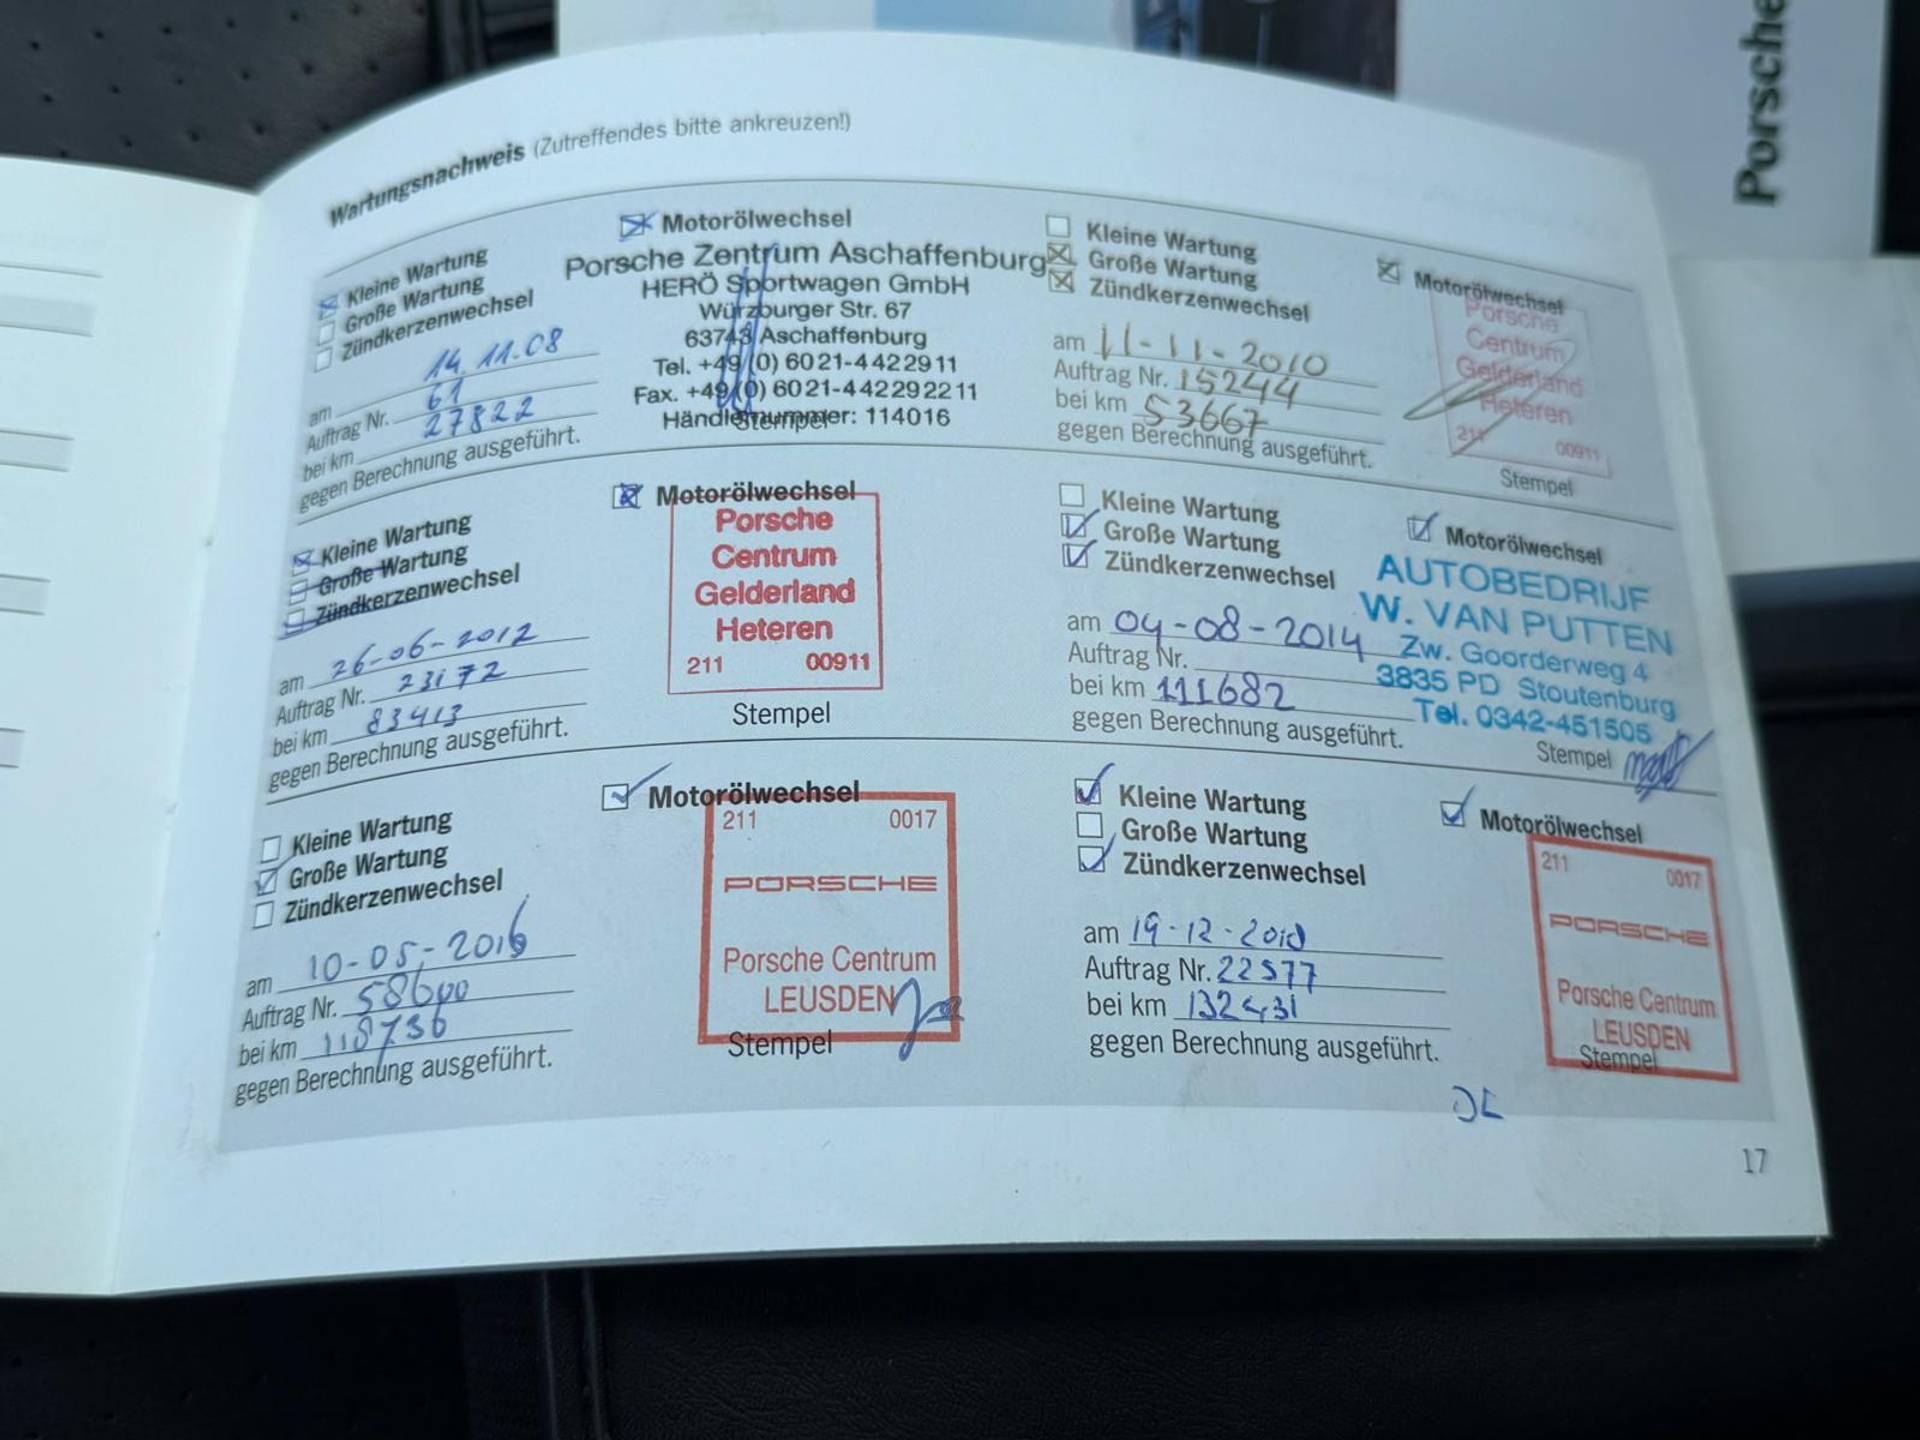 Porsche
Wartungsnachweis (Zutreffendes bitte ankreuzen!)
Kleine Wartung
Große Wartung
Zündkerzenwechsel
Motorölwechsel
am 14.11.08
Auftrag Nr. 61
bei km 27822
gegen Berechnung ausgeführt.
Porsche Zentrum Aschaffenburg
HERÖ Sportwagen GmbH
Würzburger Str. 67
63743 Aschaffenburg
Tel. +49 (0) 6021-4422911
Fax. +49 (0) 6021-442292211
Händlernummer: 114016
Stempel
Kleine Wartung
Große Wartung
Zündkerzenwechsel
Motorölwechsel
am 11-11-2010
Auftrag Nr. 15244
bei km 53667
gegen Berechnung ausgeführt.
Porsche
Centrum
Gelderland
Heteren
211 00911
Stempel
Kleine Wartung
Große Wartung
Zündkerzenwechsel
Motorölwechsel
am 26-06-2012
Auftrag Nr. 23172
bei km 83413
gegen Berechnung ausgeführt.
Porsche
Centrum
Gelderland
Heteren
211 00911
Stempel
Kleine Wartung
Große Wartung
Zündkerzenwechsel
Motorölwechsel
am 04-08-2014
Auftrag Nr.
bei km 111682
gegen Berechnung ausgeführt.
AUTOBEDRIJF
W. VAN PUTTEN
Zw. Goorderweg 4
3835 PD Stoutenburg
Tel. 0342-451505
Stempel
Kleine Wartung
Große Wartung
Zündkerzenwechsel
Motorölwechsel
am 10-05-2016
Auftrag Nr. 58600
bei km 118736
gegen Berechnung ausgeführt.
211 0017
PORSCHE
Porsche Centrum
LEUSDEN
Stempel
Kleine Wartung
Große Wartung
Zündkerzenwechsel
Motorölwechsel
am 19-12-2018
Auftrag Nr. 22577
bei km 132431
gegen Berechnung ausgeführt.
211 0017
PORSCHE
Porsche Centrum
LEUSDEN
Stempel
17